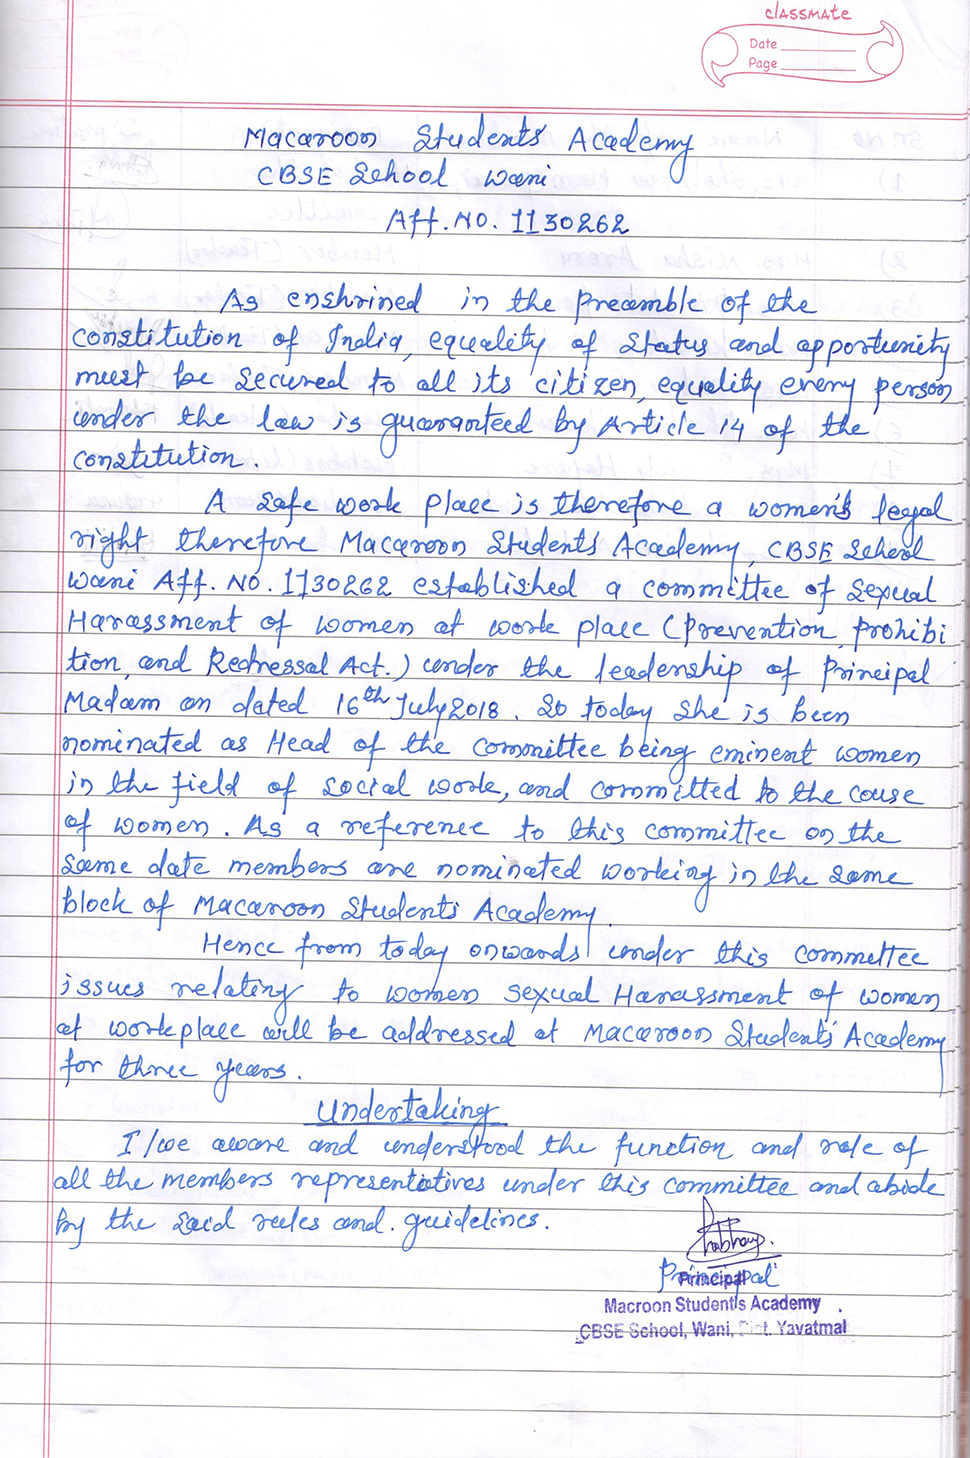 classmate
Date
Page
Macaroon Students' Academy
CBSE School Wani
Aff. No. 1130262
As enshrined in the Preamble of the
constitution of India, equality of status and opportunity
must be secured to all its citizen, equality every person
under the law is guaranteed by Article 14 of the
constitution.
A safe work place is therefore a women's legal
right therefore Macaroon Students' Academy, CBSE School
Wani Aff. No. 1130262 established a committee of sexual
Harassment of women at work place (Prevention, prohibi
tion, and Redressal Act.) under the leadership of Principal
Madam on dated 16th July 2018. So today she is been
nominated as Head of the committee being eminent women
in the field of social work, and committed to the couse
of women. As a reference to this committee on the
same date members are nominated working in the same
block of Macaroon Students Academy.
Hence from today onwards under this committee
issues relating to women sexual Harassment of women
at workplace will be addressed at Macaroon Students' Academy
for three years.
Undertaking
I/we aware and understood the function and role of
all the members representatives under this committee and abide
by the said rules and. guidelines.
Principal
Principal
Macroon Student's Academy
CBSE School, Wani, Dist. Yavatmal